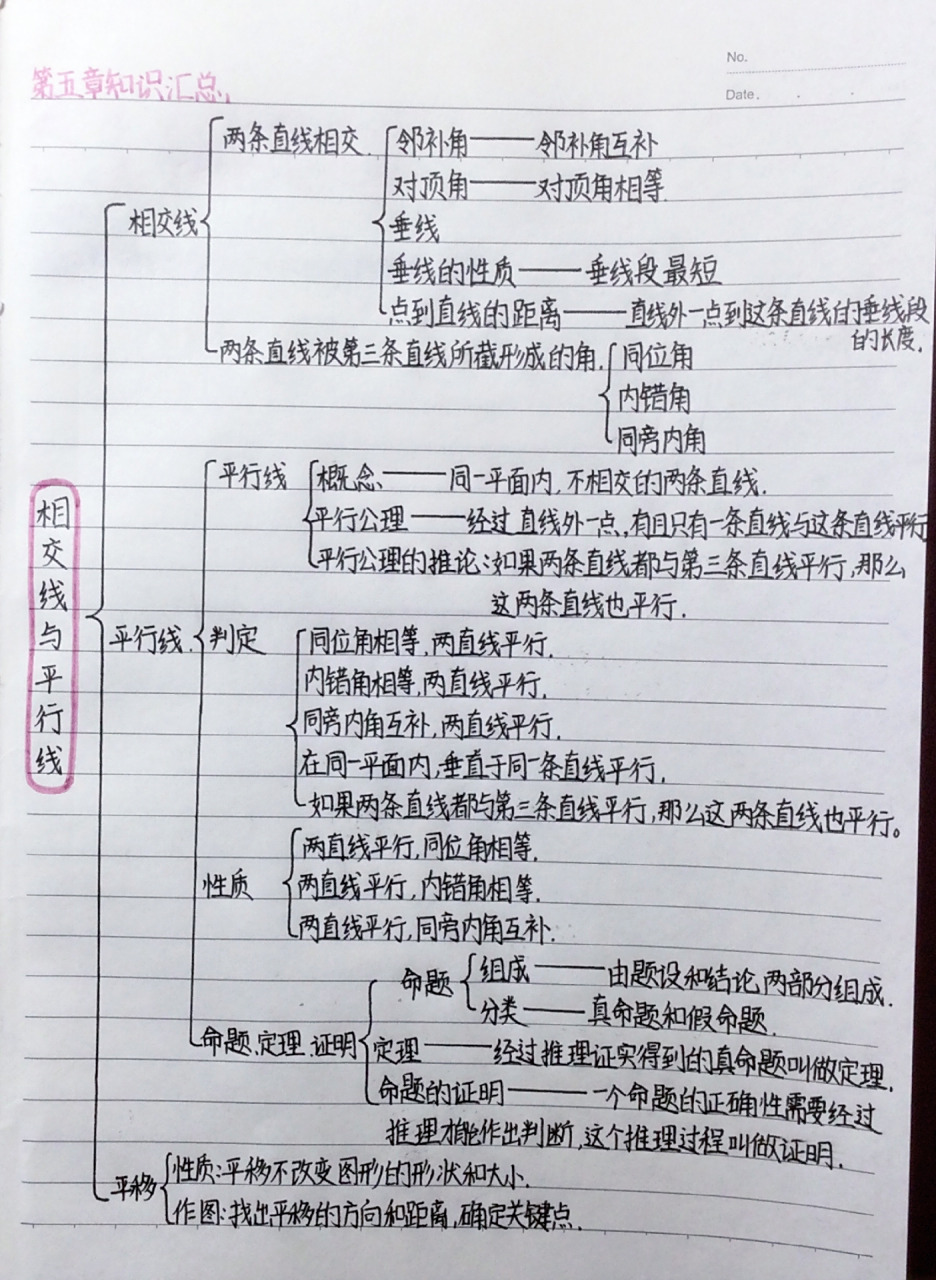 No.
Date.
第五章知识汇总
两条直线相交
邻补角——邻补角互补
对顶角——对顶角相等
相交线
垂线
垂线的性质——垂线段最短
点到直线的距离——直线外一点到这条直线的垂线段
的长度.
两条直线被第三条直线所截形成的角.
同位角
内错角
同旁内角
相交线与平行线
平行线
概念——同一平面内,不相交的两条直线.
平行公理——经过直线外一点,有且只有一条直线与这条直线平行
平行公理的推论:如果两条直线都与第三条直线平行,那么
这两条直线也平行.
平行线.
判定
同位角相等,两直线平行.
内错角相等,两直线平行.
同旁内角互补,两直线平行.
在同一平面内,垂直于同一条直线平行.
如果两条直线都与第三条直线平行,那么这两条直线也平行。
性质
两直线平行,同位角相等.
两直线平行,内错角相等.
两直线平行,同旁内角互补.
命题.定理.证明
命题
组成——由题设和结论两部分组成.
分类——真命题和假命题.
定理——经过推理证实得到的真命题叫做定理.
命题的证明——一个命题的正确性需要经过
推理才能作出判断,这个推理过程叫做证明.
平移
性质:平移不改变图形的形状和大小.
作图:找出平移的方向和距离,确定关键点.